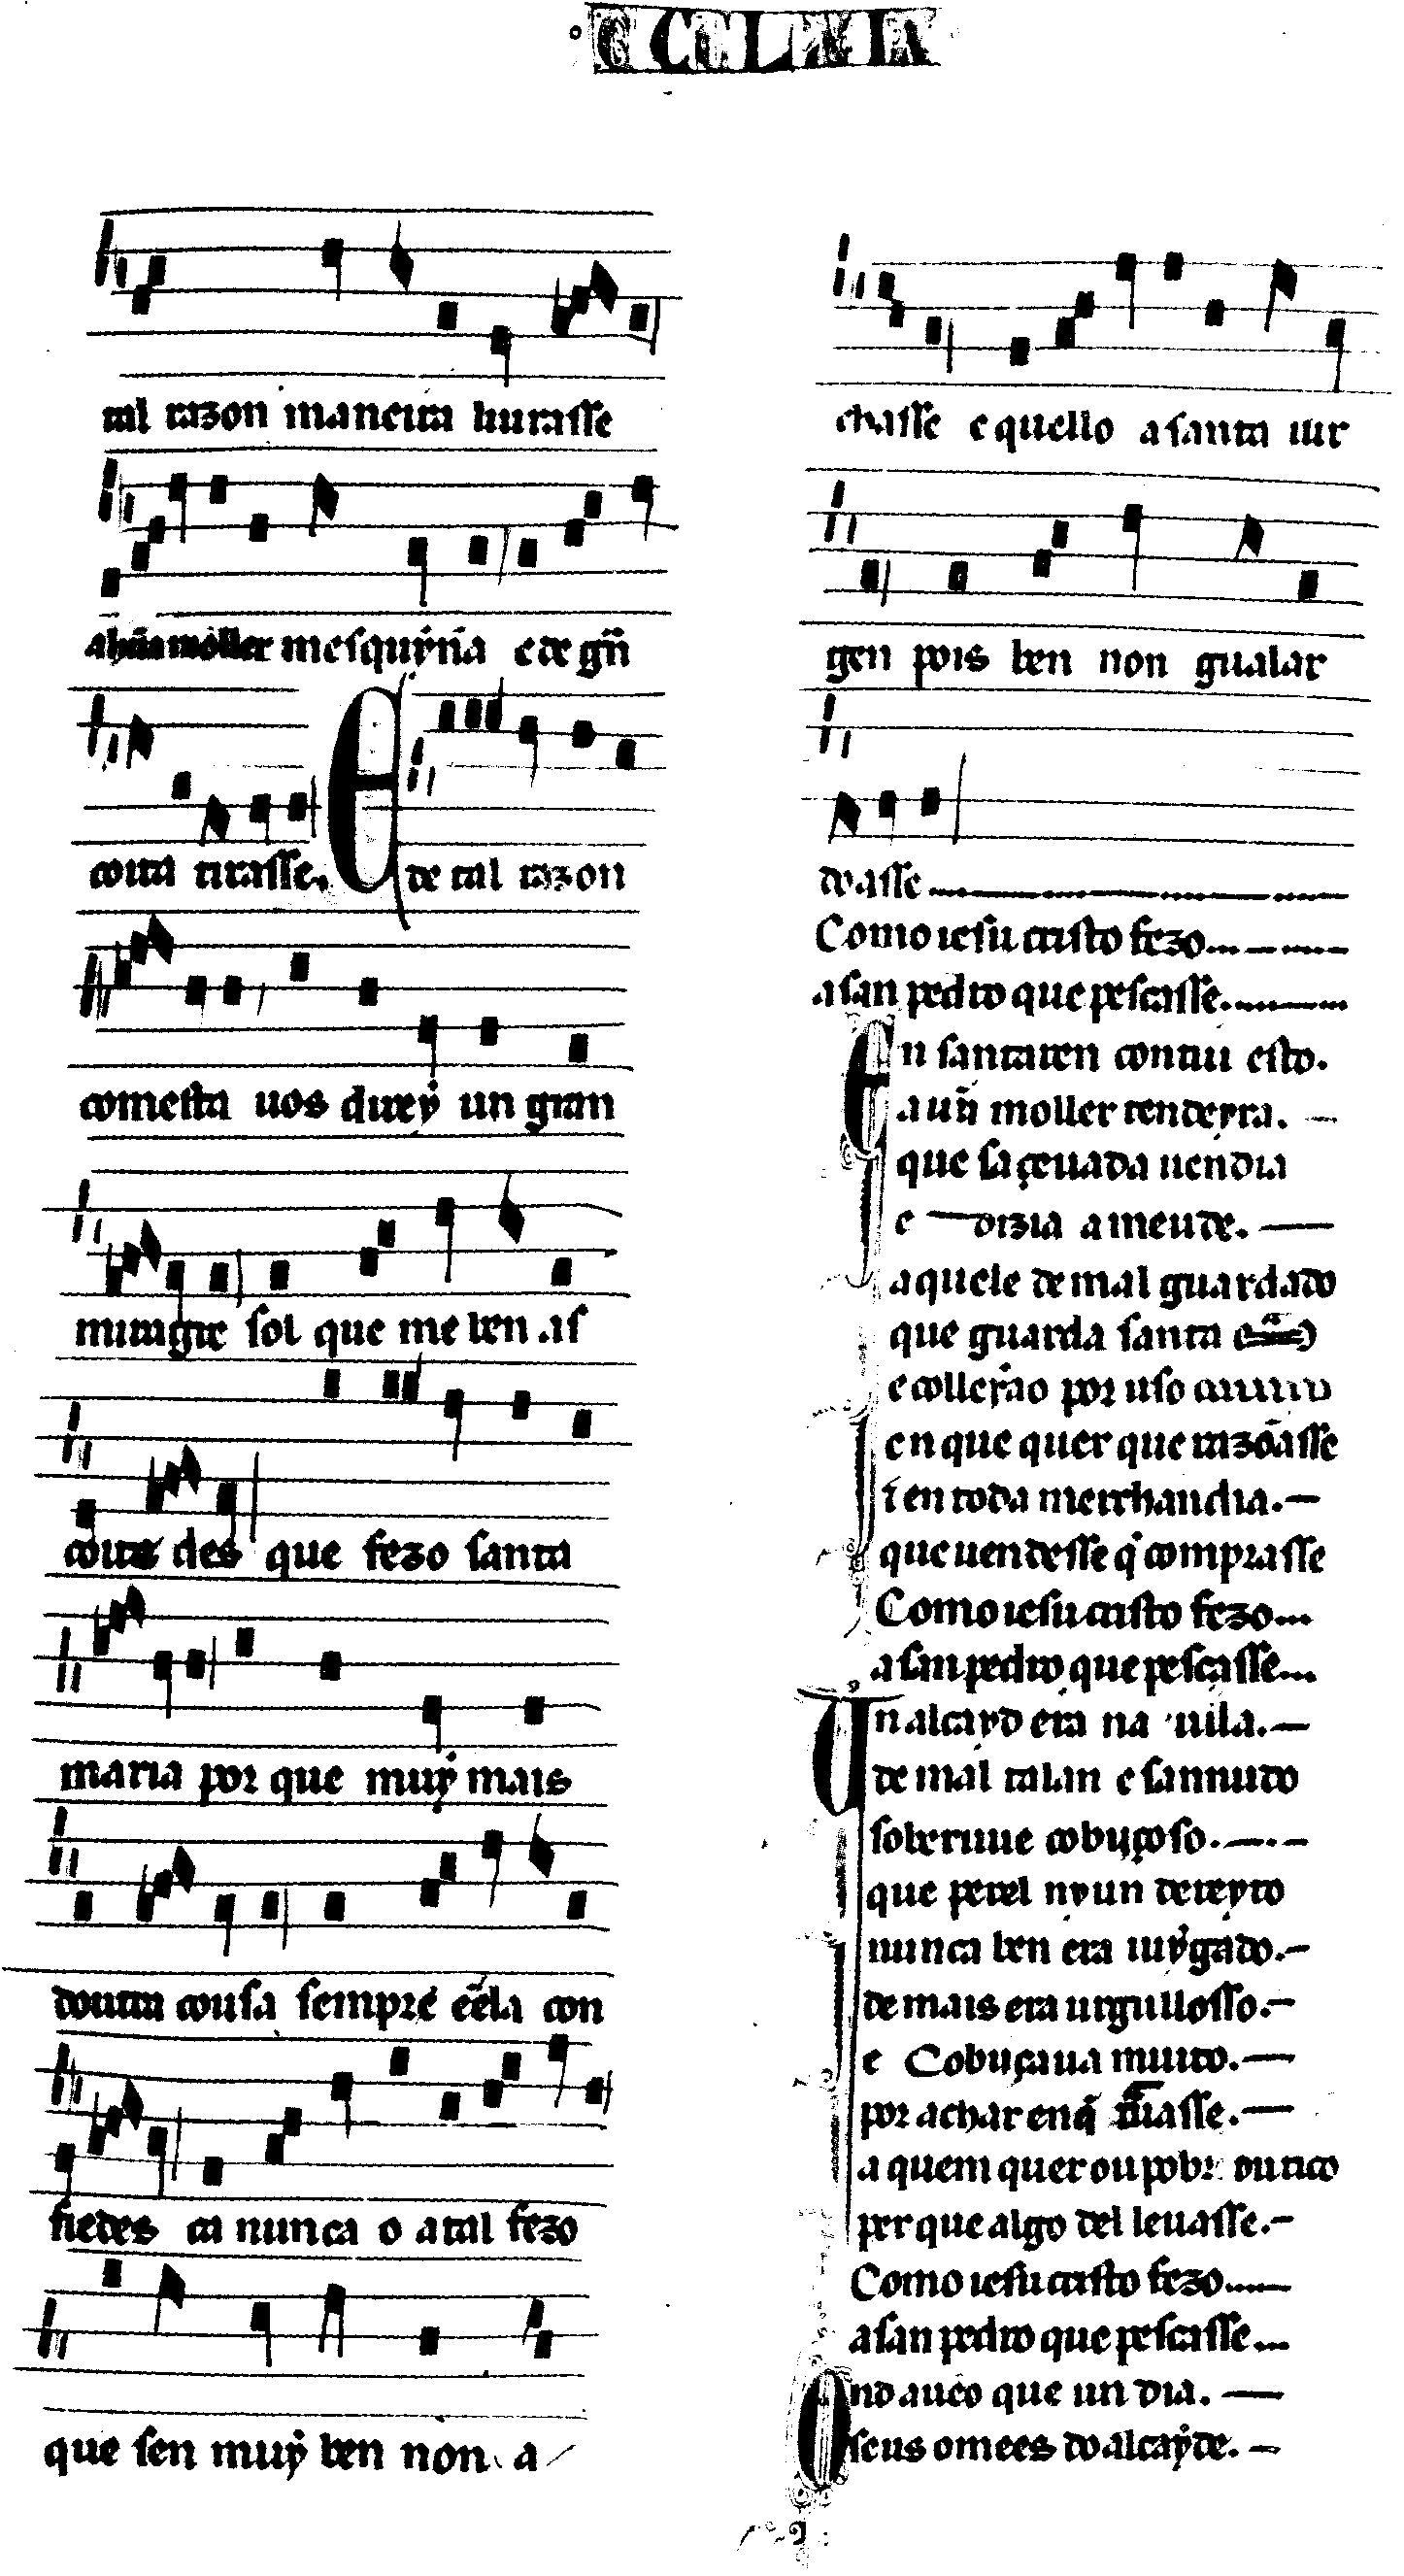 tal razon maneira buscasse
a hũa moller mesquỹna e de grã
coita tirasse. E de tal razon
com esta uos direy un gran
miragre sol que me ben as
coitedes que fezo santa
maria por que muy mais
doutra cousa sempre eẽla con
fiedes ca nunca o atal fezo
que sen muy ben non a
chasse e quello a santa uir
gen pois ben non gualar
doasse
Como iesu cristo fezo
a san pedro que pescasse.
En santaren contiu esto.
a un̄ moller tendeyra.
que sa çeuada uendia
e dizia ameude.
aquele de mal guardado
que guarda santa
e colleyao por uso
en que quer que razõasse
i en toda merchandia.
que uendesse q̇ comprasse
Como iesu cristo fezo
a san pedro que pescasse
Un alcayd era na uila.
de mal talan e sannudo
soberuue cobyçoso.
que perel nyun dereyto
nunca ben era iuygado.
de mais era urgullosso.
e Cobyçaua muito.
por achar enq̇ trauasse.
a quem quer ou pobr ou rico
per que algo del leuasse.
Como iesu cristo fezo
a san pedro que pescasse
Ond aueo que un dia.
seus omees do alcayde.